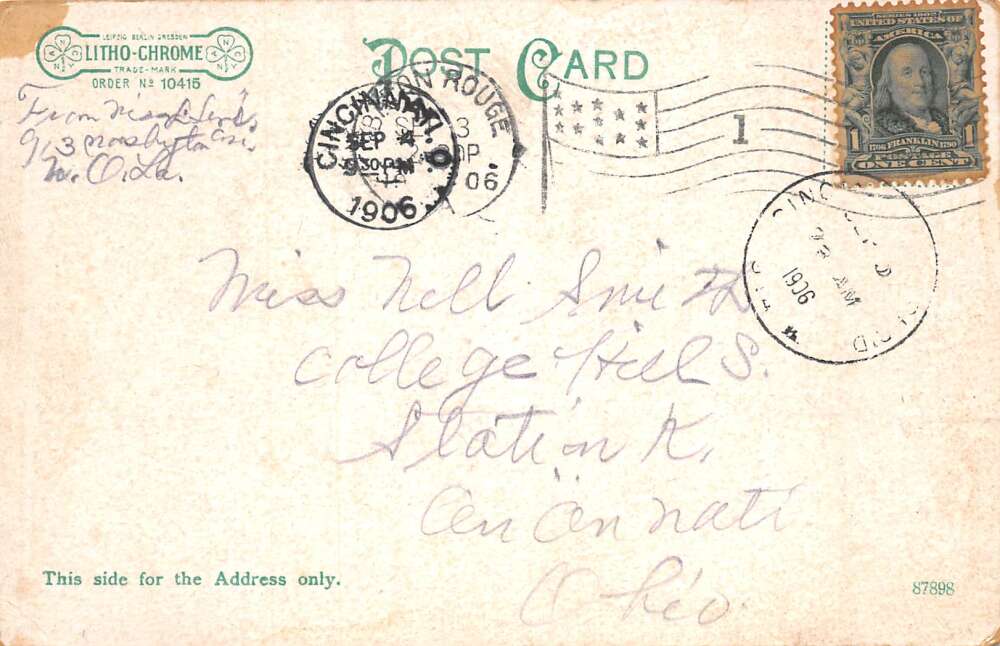 LEIPZIG BERLIN DRESDEN
LITHO-CHROME
TRADE-MARK
ORDER Nº 10415
ANCNY
ANCNY
POST CARD
SERIES 1902
UNITED STATES OF
AMERICA
1 1706 FRANKLIN 1790 1
POSTAGE
ONE CENT
From Miss
913
N.O. La.
BATON ROUGE
3
06
CINCINNATI. O.
SEP 4
930PM
1906
1
CINC
REC'D
AM
1906
Miss Nell Smith
College Hill S.
Station K,
Cincinnati
Ohio
This side for the Address only.
87898